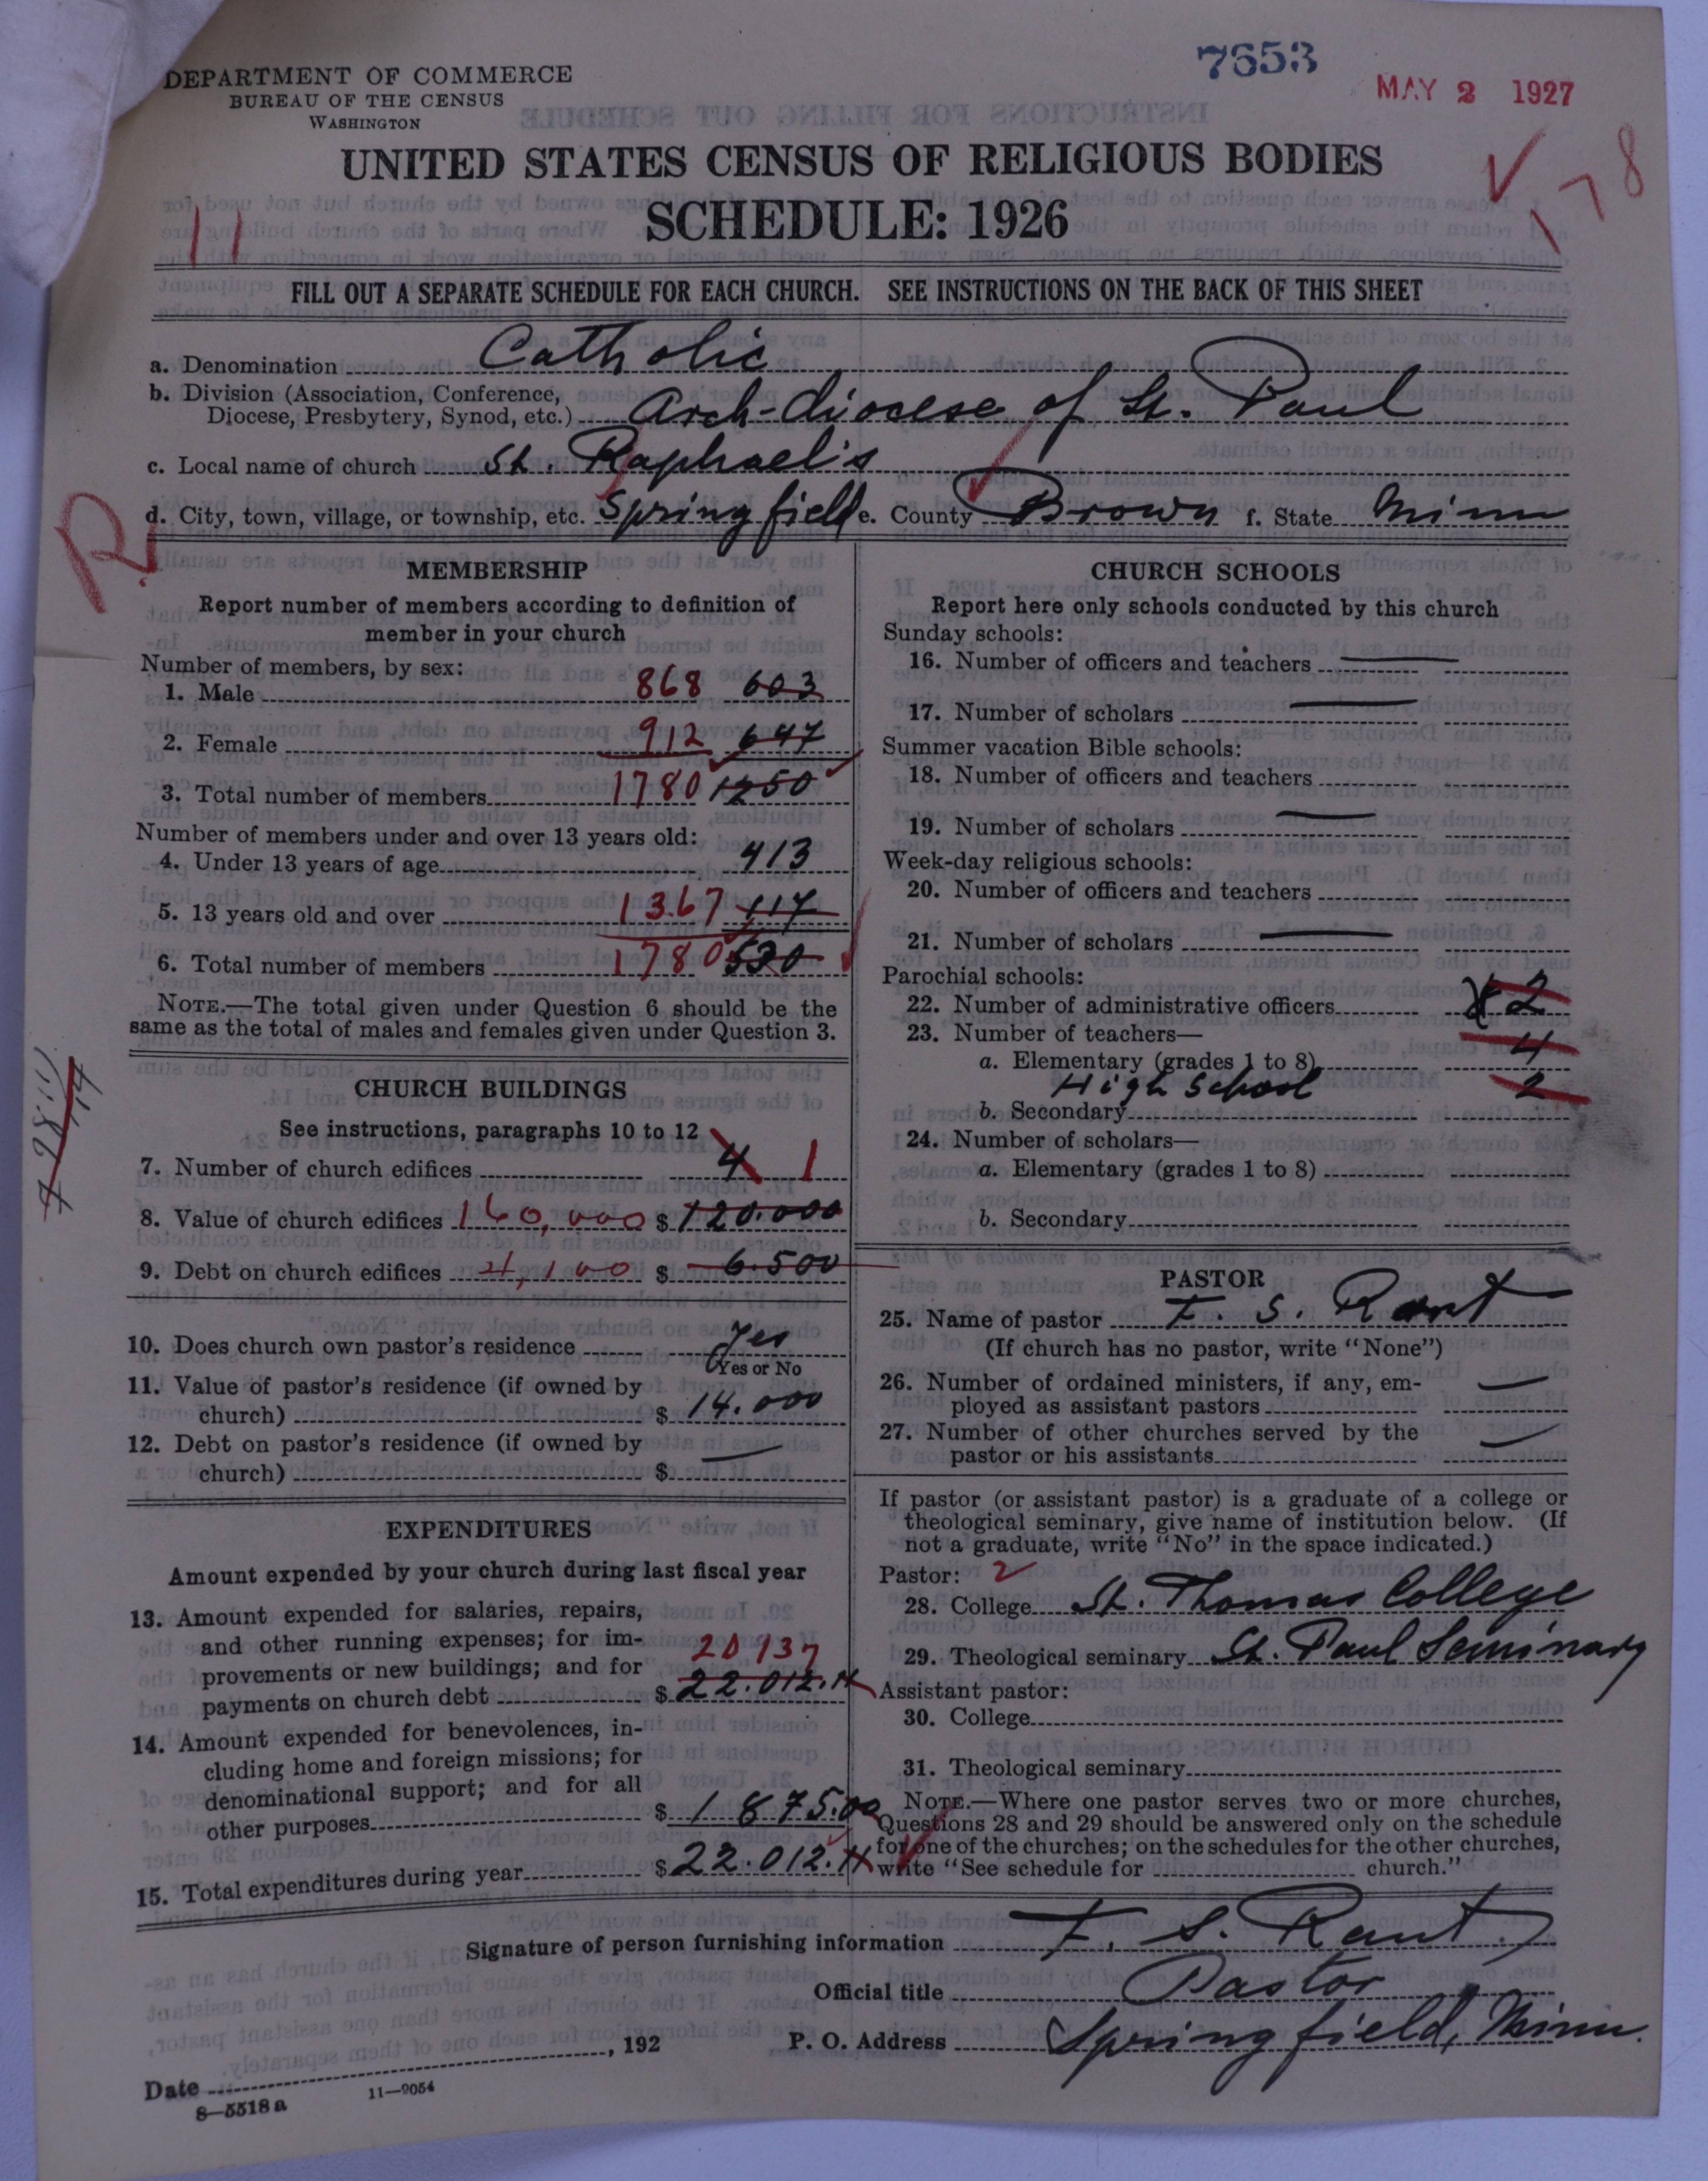 7653
MAY 2 1927
DEPARTMENT OF COMMERCE
BUREAU OF THE CENSUS
WASHINGTON
UNITED STATES CENSUS OF RELIGIOUS BODIES
SCHEDULE: 1926
11
178
FILL OUT A SEPARATE SCHEDULE FOR EACH CHURCH. SEE INSTRUCTIONS ON THE BACK OF THIS SHEET
a. Denomination Catholic
b. Division (Association, Conference,
Diocese, Presbytery, Synod, etc.) Arch-diocese of St. Paul
c. Local name of church St. Raphael's
d. City, town, village, or township, etc. Springfield e. County Brown f. State Minn
R
MEMBERSHIP
Report number of members according to definition of
member in your church
Number of members, by sex:
1. Male 868 603
2. Female 912 647
3. Total number of members 1780 1250
Number of members under and over 13 years old:
4. Under 13 years of age 413
5. 13 years old and over 1367 117
6. Total number of members 1780 530
NOTE.—The total given under Question 6 should be the
same as the total of males and females given under Question 3.
CHURCH BUILDINGS
See instructions, paragraphs 10 to 12
7. Number of church edifices 4 1
8. Value of church edifices 160,000 $ 120.000
9. Debt on church edifices 4,100 $ 6.500
10. Does church own pastor's residence Yes
(Yes or No
11. Value of pastor's residence (if owned by
church) $ 14.000
12. Debt on pastor's residence (if owned by
church) $ —
EXPENDITURES
Amount expended by your church during last fiscal year
13. Amount expended for salaries, repairs,
and other running expenses; for im-
provements or new buildings; and for
payments on church debt $ 20137 22.012.14
14. Amount expended for benevolences, in-
cluding home and foreign missions; for
denominational support; and for all
other purposes $ 1875.00
15. Total expenditures during year $ 22.012.14
CHURCH SCHOOLS
Report here only schools conducted by this church
Sunday schools:
16. Number of officers and teachers —
17. Number of scholars —
Summer vacation Bible schools:
18. Number of officers and teachers
19. Number of scholars —
Week-day religious schools:
20. Number of officers and teachers
21. Number of scholars —
Parochial schools:
22. Number of administrative officers 2
23. Number of teachers—
a. Elementary (grades 1 to 8) 4
High School
b. Secondary 2
24. Number of scholars—
a. Elementary (grades 1 to 8)
b. Secondary
PASTOR
25. Name of pastor F. S. Rant
(If church has no pastor, write "None")
26. Number of ordained ministers, if any, em-
ployed as assistant pastors —
27. Number of other churches served by the
pastor or his assistants —
If pastor (or assistant pastor) is a graduate of a college or
theological seminary, give name of institution below. (If
not a graduate, write "No" in the space indicated.)
Pastor: 2
28. College St. Thomas College
29. Theological seminary St. Paul Seminary
Assistant pastor:
30. College
31. Theological seminary
NOTE.—Where one pastor serves two or more churches,
Questions 28 and 29 should be answered only on the schedule
for one of the churches; on the schedules for the other churches,
write "See schedule for church."
Signature of person furnishing information F. S. Rant
Official title Pastor
P. O. Address Springfield, Minn.
Date , 192
8—5518 a 11—9054